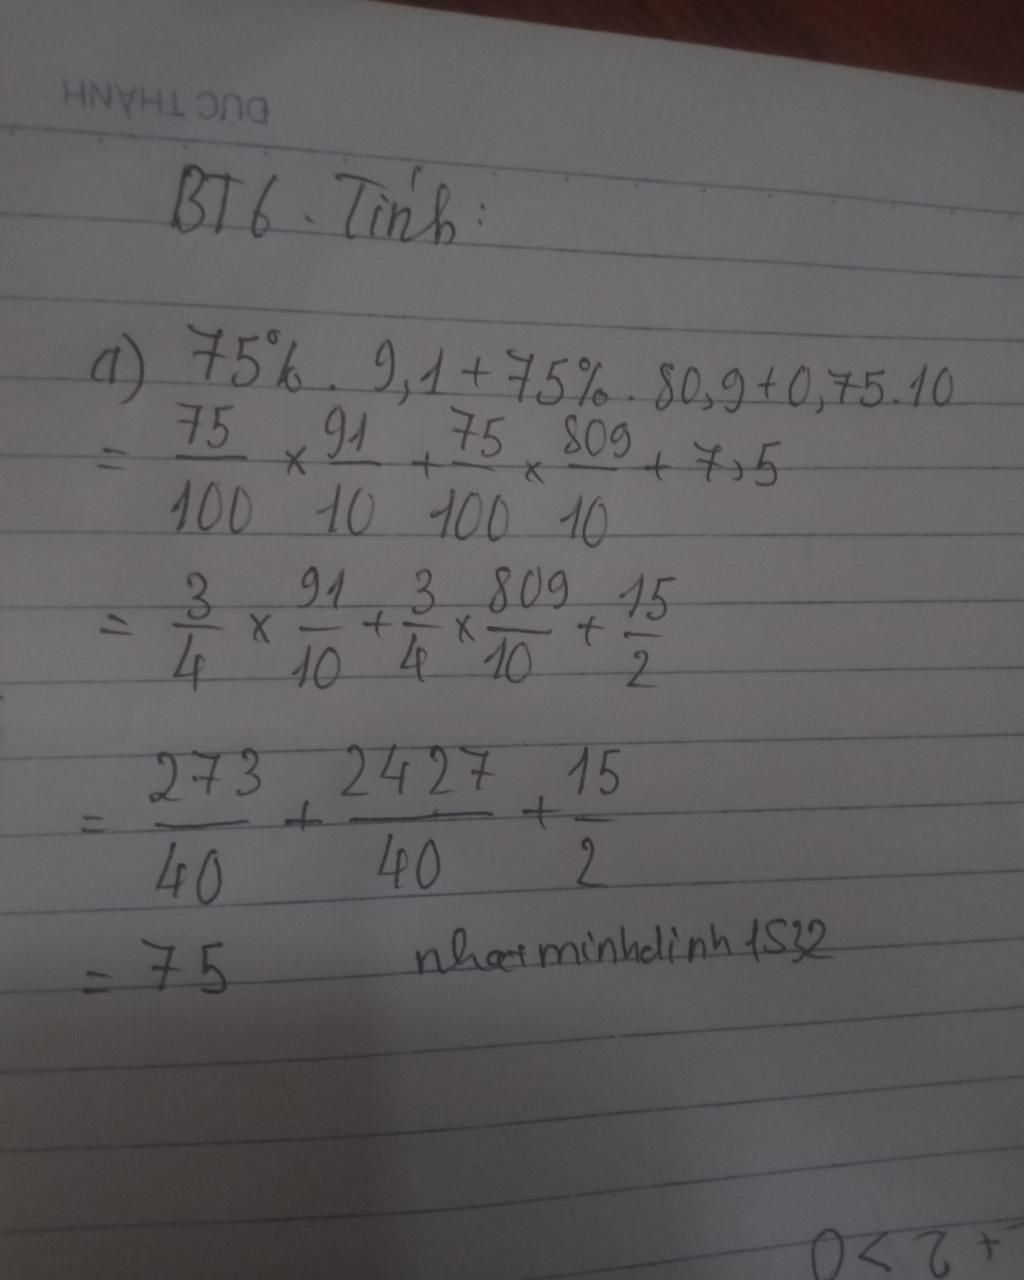 ĐỨC THÀNH
BT6. Tính:
a) 75% . 9,1 + 75% . 80,9 + 0,75.10
= 75/100 × 91/10 + 75/100 × 809/10 + 7,5
= 3/4 × 91/10 + 3/4 × 809/10 + 15/2
= 273/40 + 2427/40 + 15/2
= 75 nhatminhdinh1532
+ 2 > 0